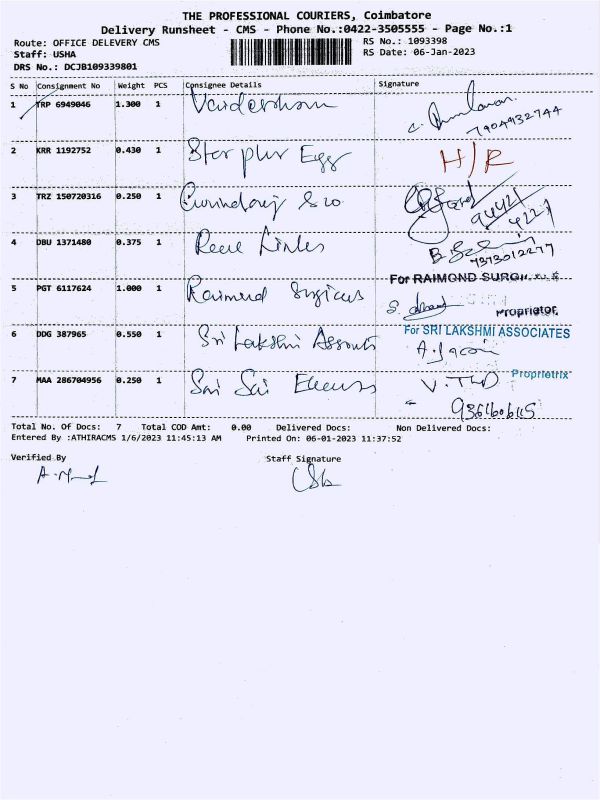 THE PROFESSIONAL COURIERS, Coimbatore
Delivery Runsheet - CMS - Phone No.:0422-3505555 - Page No.:1
Route: OFFICE DELEVERY CMS
Staff: USHA
DRS No.: DCJB109339801
RS No.: 1093398
RS Date: 06-Jan-2023
S No Consignment No Weight PCS Consignee Details Signature
1 TRP 6949046 1.300 1
7904932744
2 KRR 1192752 0.430 1 Star plus Egg H/R
3 TRZ 150720316 0.250 1
94421
4221
4 DBU 1371480 0.375 1
7373012277
For RAIMOND SURGI
5 PGT 6117624 1.000 1 Raimond Surgicals
Proprietor
For SRI LAKSHMI ASSOCIATES
6 DDG 387965 0.550 1 Sri Lakshmi
Proprietrix
7 MAA 286704956 0.250 1 Sri Sai
Total No. Of Docs: 7 Total COD Amt: 0.00 Delivered Docs: Non Delivered Docs:
Entered By :ATHIRACMS 1/6/2023 11:45:13 AM Printed On: 06-01-2023 11:37:52
Verified By Staff Signature